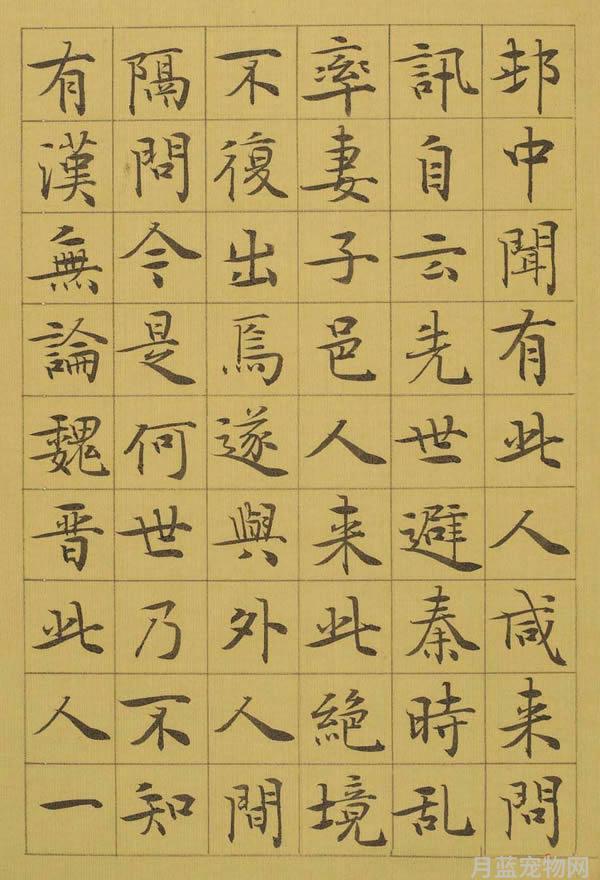 邨中聞有此人咸来問
訊自云先世避秦時乱
率妻子邑人来此絶境
不復出焉遂與外人間
隔問今是何世乃不知
有漢無論魏晋此人一
月蓝宠物网